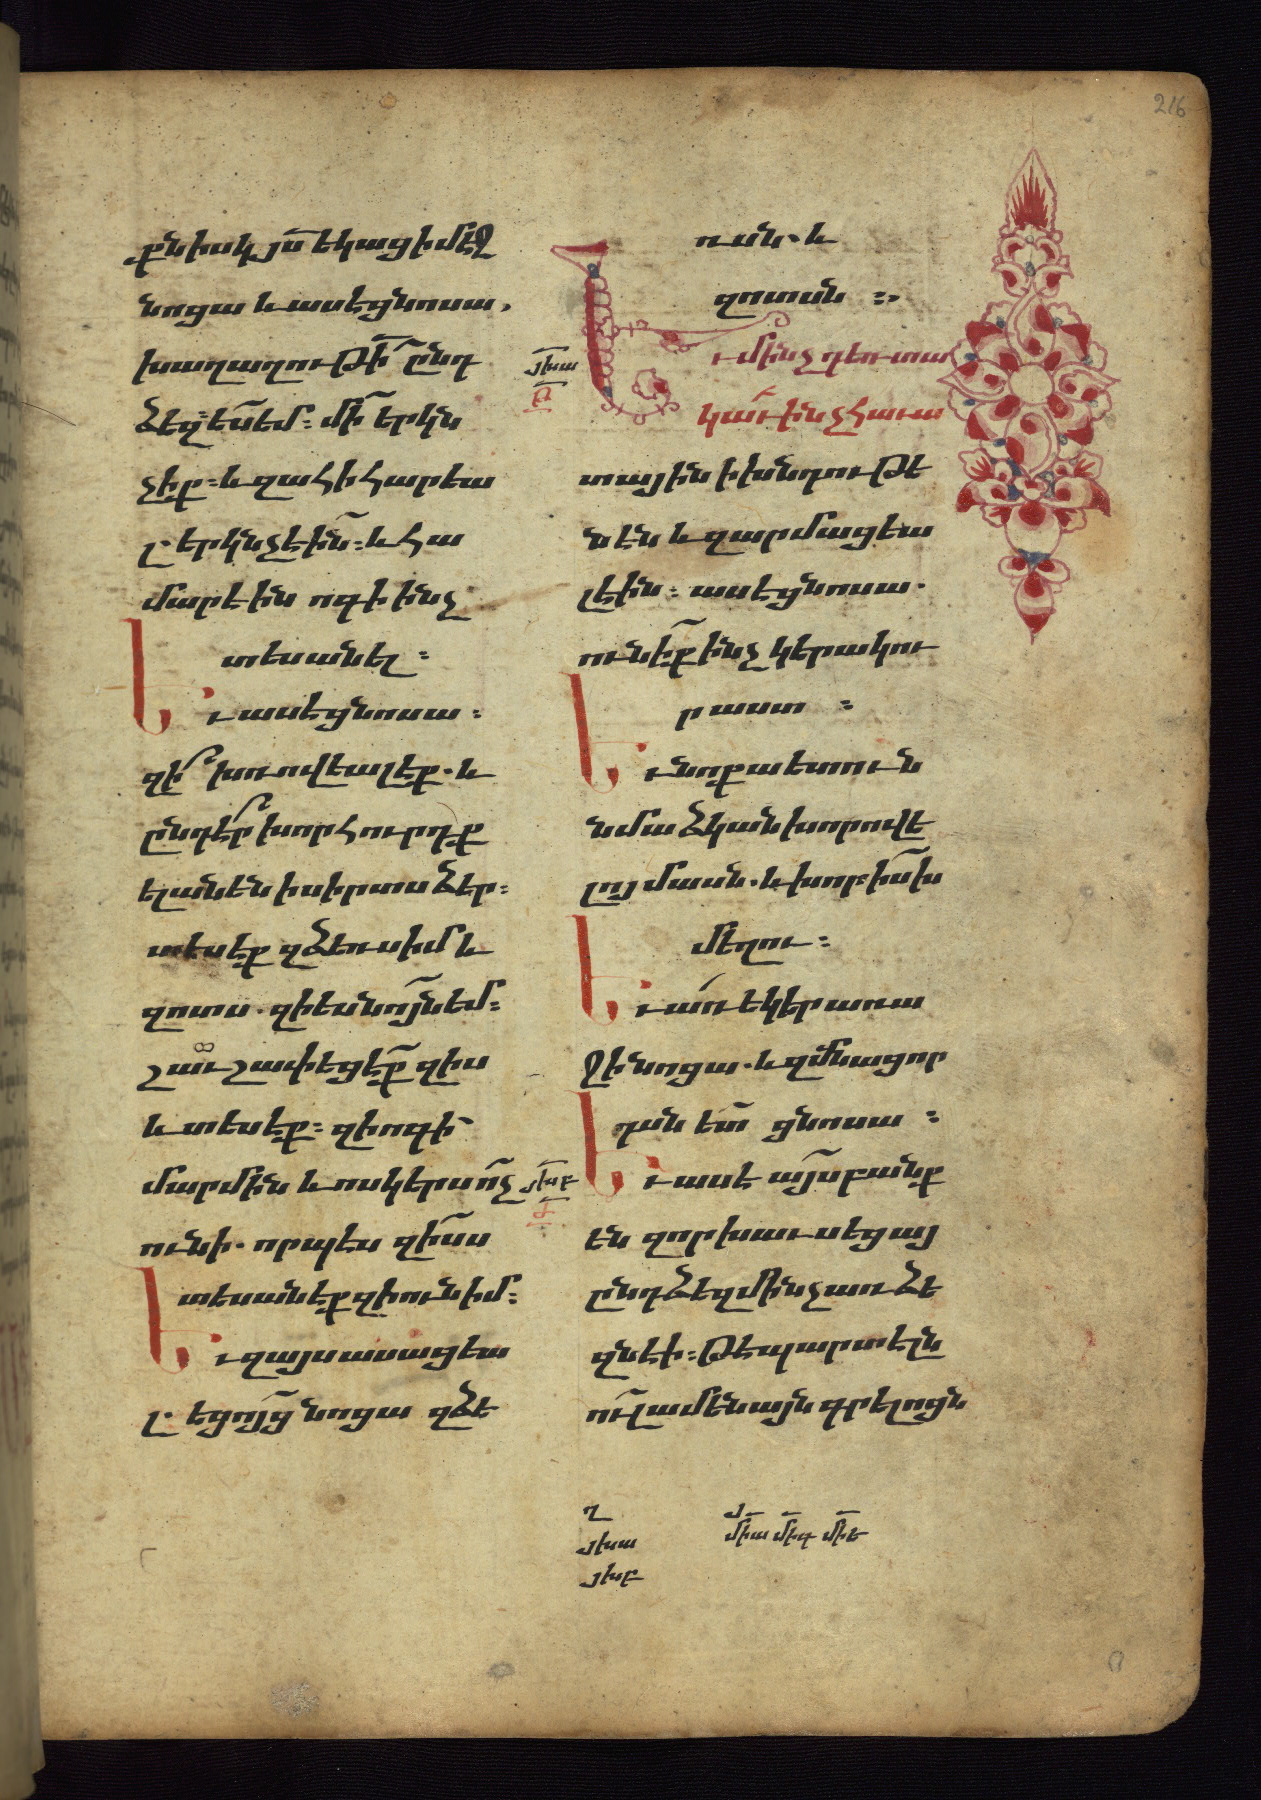 216
քն իսկ յս̅ եկաց ի մէջ
նոցա և ասէ ցնոսա,
խաղաղութի̅ ընդ
ձեզ ես եմ։ մի՛ երկն
չիք։ և զահի հարեա
լ երկնչէին։ և հա
մարէին ոգի ինչ
տեսանել։
Եւ ասէ ցնոսա։
զի՞ խռովեալ էք. և
ընդէ՞ր խորհուրդք
ելանեն ի սիրտս ձեր։
տեսէք զձեռս իմ և
զոտս. զի ես նոյն եմ։
շաւշափեցէք զիս
և տեսէք։ զի ոգի
մարմին և ոսկերս ոչ
ունի. որպէս զիսս
տեսանէք զի ունիմ։
Եւ զայս ասացեա
լ եցոյց նոցա զձե
յխա
յխբ
ռսն. և
զոտսն ։
Եւ մինչ դեռ տա
կաւին չհաւա
տային ի խնդութե
նէն և զարմացեա
լ էին։ ասէ ցնոսա.
ունիք ինչ կերակու
ր աստ ։
Եւ նոքա ետուն
նմա ձկան խորովե
լոյ մասն. և խորիսխ
մեղու։
Եւ առ եկեր առա
ջի նոցա. և զմնացոր
դսն ետ ցնոսա ։
Եւ ասէ այս բանք
են զոր խաւսեցայ
ընդ ձեզ մինչ առ ձե
զն էի։ թե պարտ է լն
ուլ ամենայն գրելոցն
յխա
յխբ
միա միգ միե